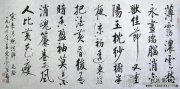 薄霧濃雲愁
永晝瑞腦消金
獸佳節又重
陽玉枕紗廚半
夜涼初透東籬
把酒黃昏後有
暗香盈袖莫道不
消魂簾卷西風
人比黃花瘦